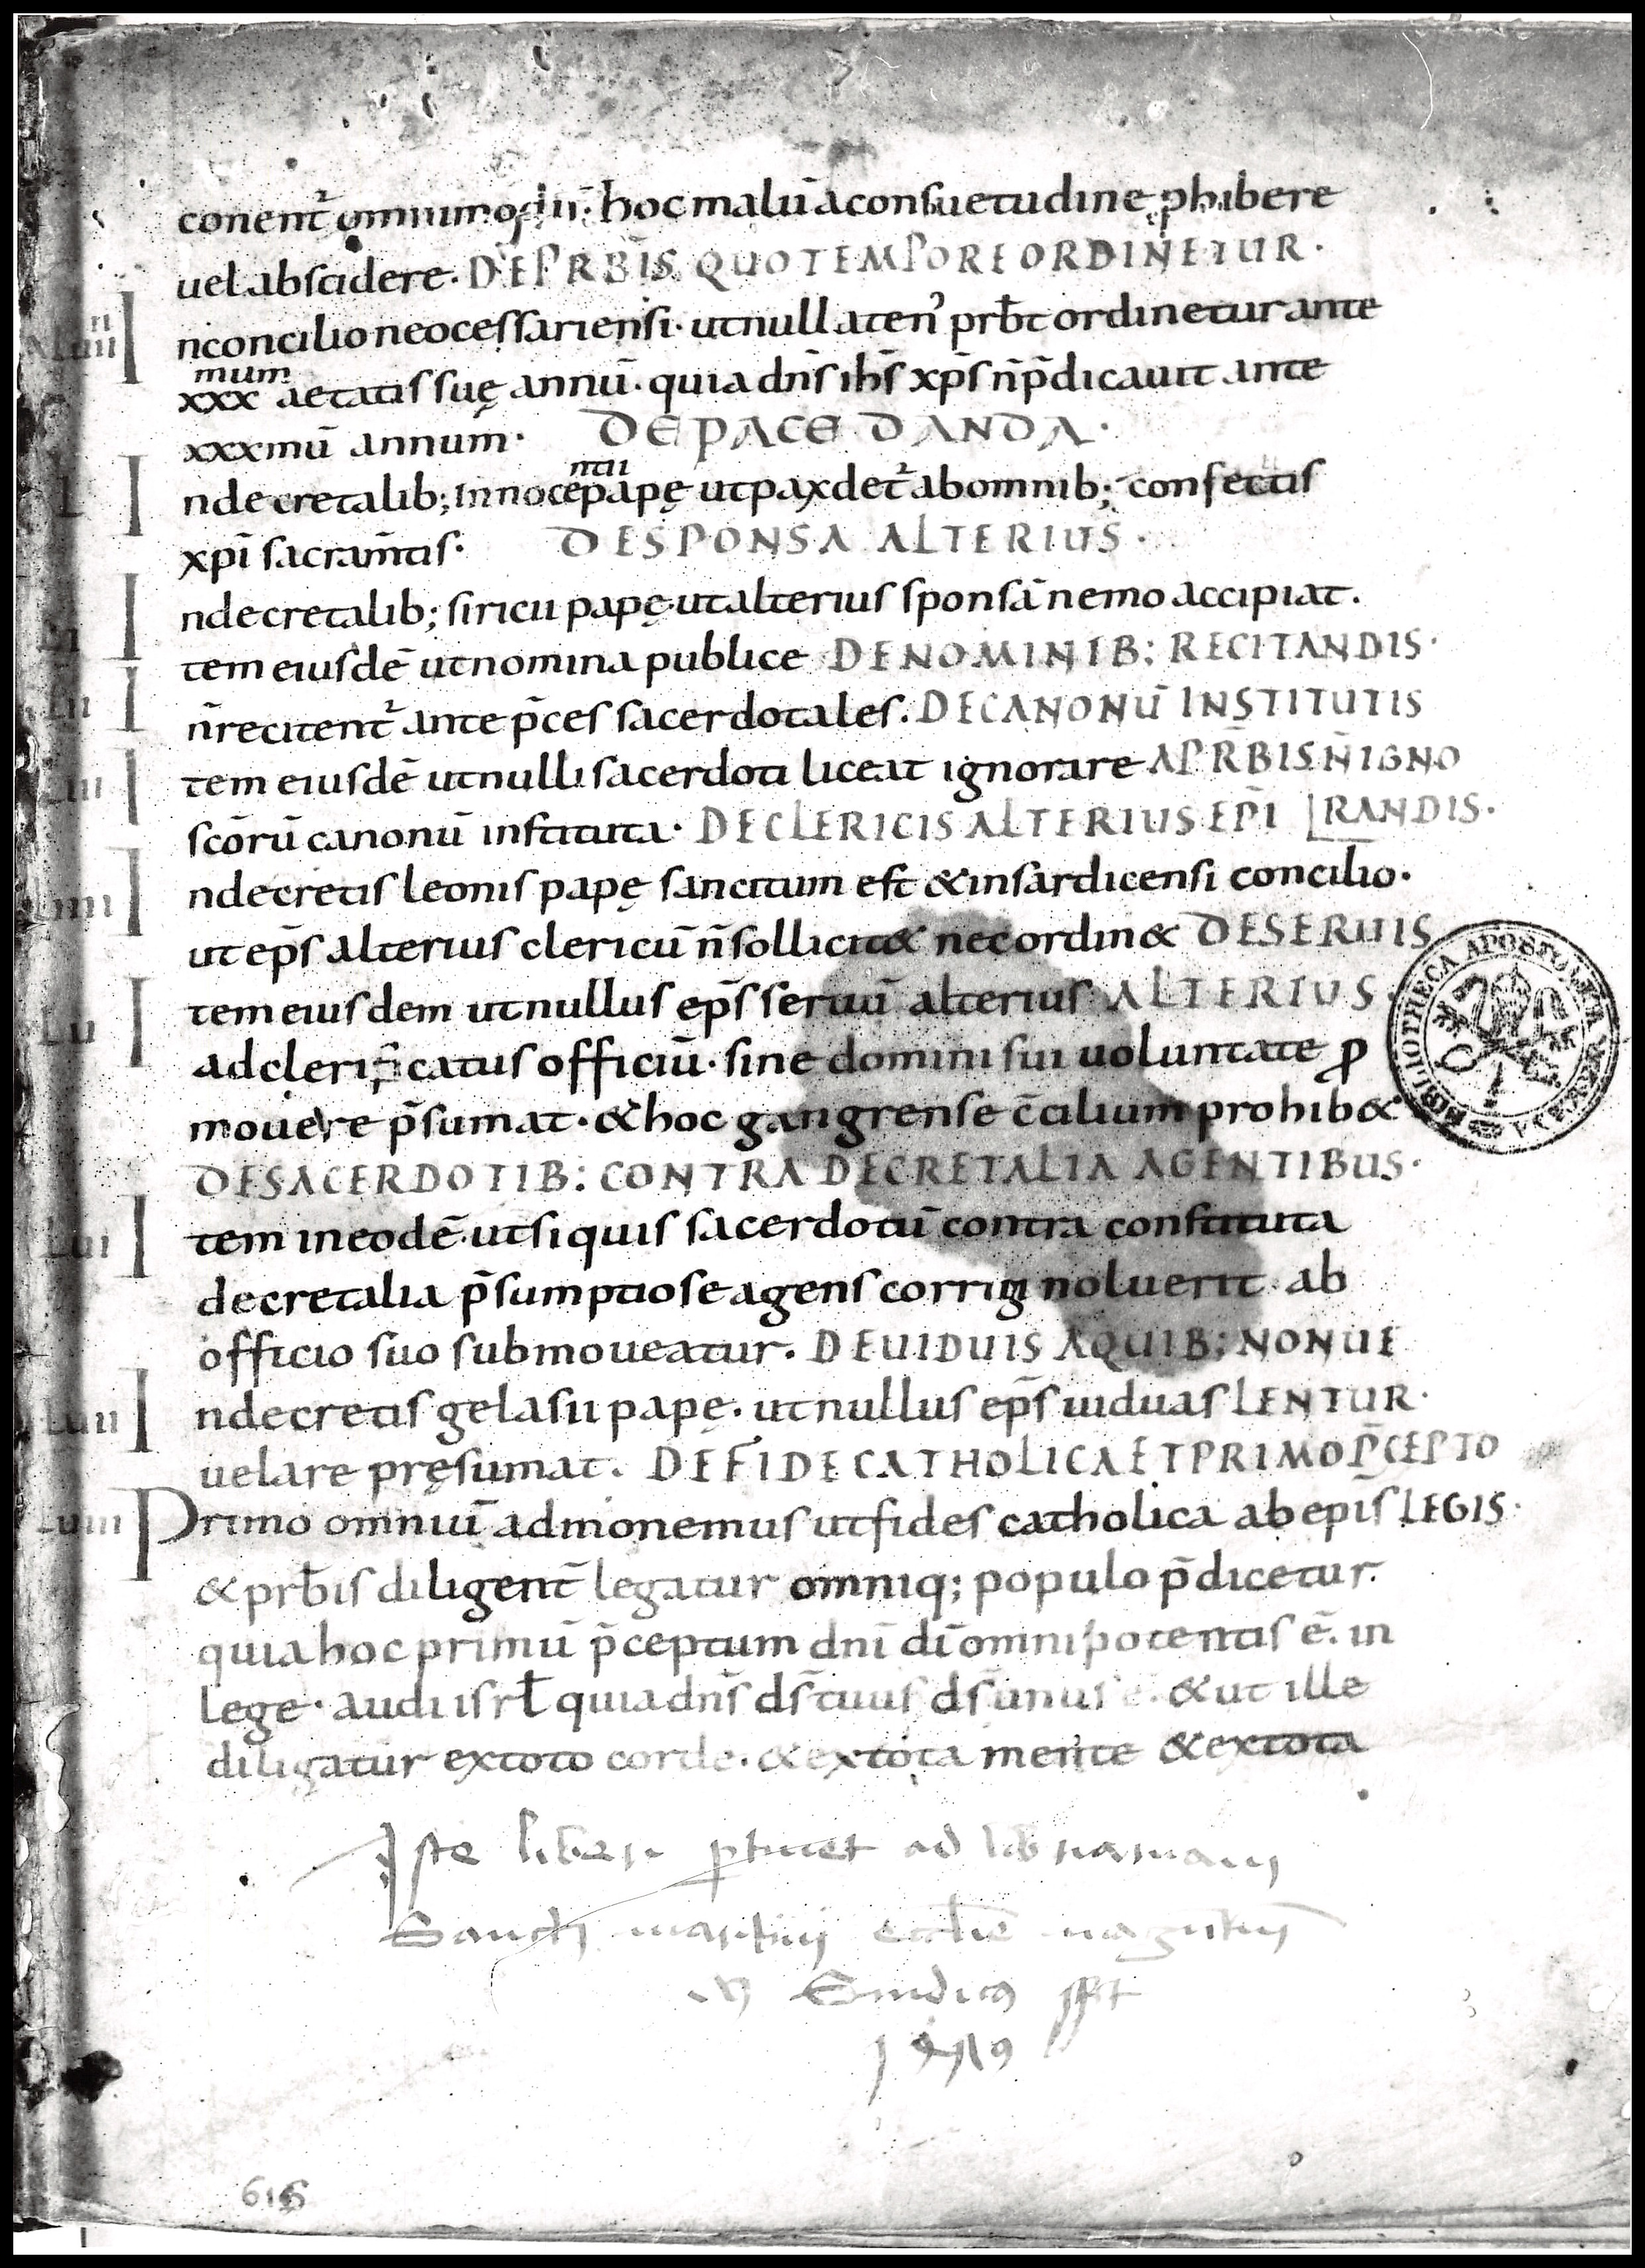 conent᷑ omnimodis hoc malū a consuetudine phibere
uel abscidere. DE PRB̄IS QUO TEMPORE ORDINETUR.
XLuiiii In concilio neocessariensi. ut nullaten᾿ prb̄t ordinetur ante
xxx mum aetatis suę annū. quia dn̄s ih̄s xp̄s n̄ p̄dicauit ante
xxxmū annum. DE PACE DANDA.
L In decretalib; innocentii papę ut pax det᷑ ab omnib; confectis
xp̄i sacram̄tis. DE SPONSA ALTERIUS.
Li In decretalib; siricii papę ut alterius sponsā nemo accipiat.
Lii Item eiusdē ut nomina publice DE NOMINIB; RECITANDIS.
n̄ recitent᷑ ante p̄ces sacerdotales. DE CANONŪ INSTITUTIS
Liii Item eiusdē ut nulli sacerdoti liceat ignorare A PRB̄IS N̄ IGNO
sc̄orū canonū instituta. DE CLERICIS ALTERIUS EP̄I RANDIS.
Liiii In decretis leonis papę sancitum est & in sardicensi concilio.
ut ep̄s alterius clericū n̄ sollicit& nec ordin& DE SERUIS
Lu Item eiusdem ut nullus ep̄s seruū alterius ALTERIUS.
ad clericatus officiū. sine domini sui uoluntate ꝓ
mouere p̄sumat. & hoc gangrense c̄cilium prohib&
DE SACERDOTIB; CONTRA DECRETALIA AGENTIBUS.
Lui Item in eodē ut si quis sacerdotū contra constituta
decretalia p̄sumptiose agens corrigi noluerit. ab
officio suo submoueatur. DE UIDUIS A QUIB; NON UE
Luii In decretis gelasii papę. ut nullus ep̄s uiduas LENTUR.
uelare pręsumat. DE FIDE CATHOLICA ET PRIMO P̄CEPTO
Luiii Primo omniū admonemus ut fides catholica ab ep̄is LEGIS.
& prb̄is diligent̄ legatur omniq; populo p̄dicetur.
quia hoc primū p̄ceptum dn̄i dī omnipotentis ē. in
lege. audi isrł quia dn̄s ds̄ tuus ds̄ unus ē. & ut ille
diligatur ex toto corde. & ex tota mente & ex tota
Iste liber ꝑtinet ad librariam
Sancti martini eccl̄ie magūtin̄
M Sindicus sst
1479
616
BIBLIOTHECA APOSTOLICA VATICANA